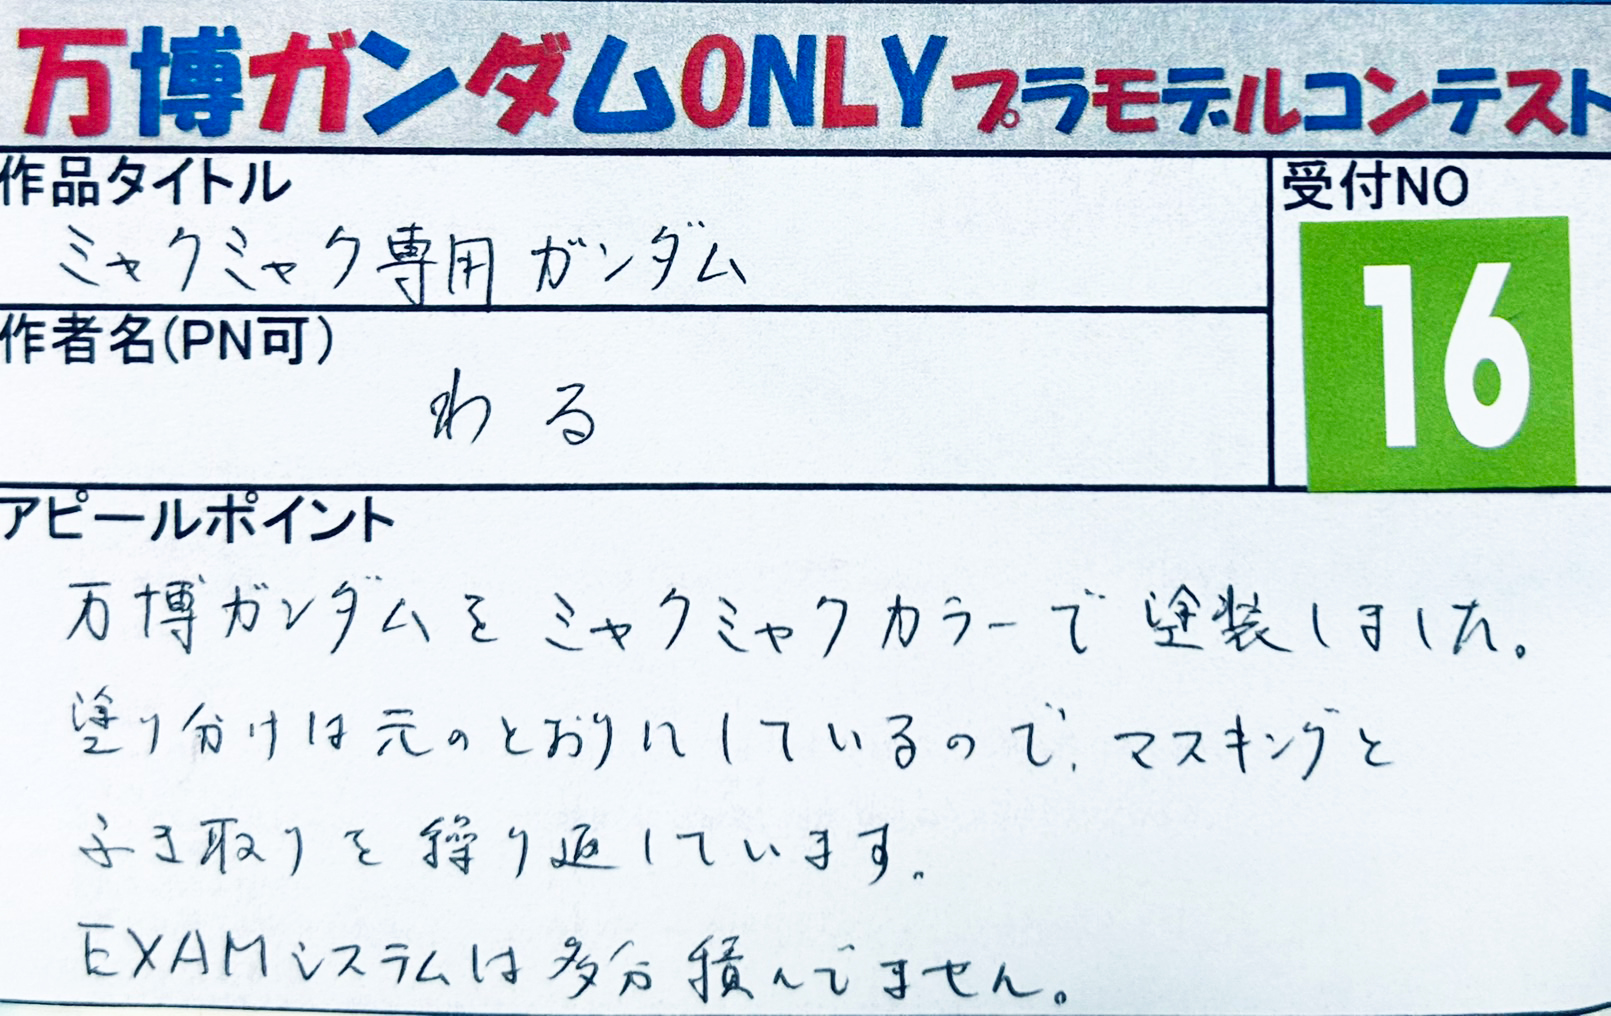 万博ガンダムONLYプラモデルコンテスト
作品タイトル
ミャクミャク専用ガンダム
受付NO
16
作者名(PN可)
わる
アピールポイント
万博ガンダムをミャクミャクカラーで塗装しました。
塗り分けは元のとおりにしているので、マスキングと
ふき取りを繰り返しています。
EXAMシステムは多分積んでません。